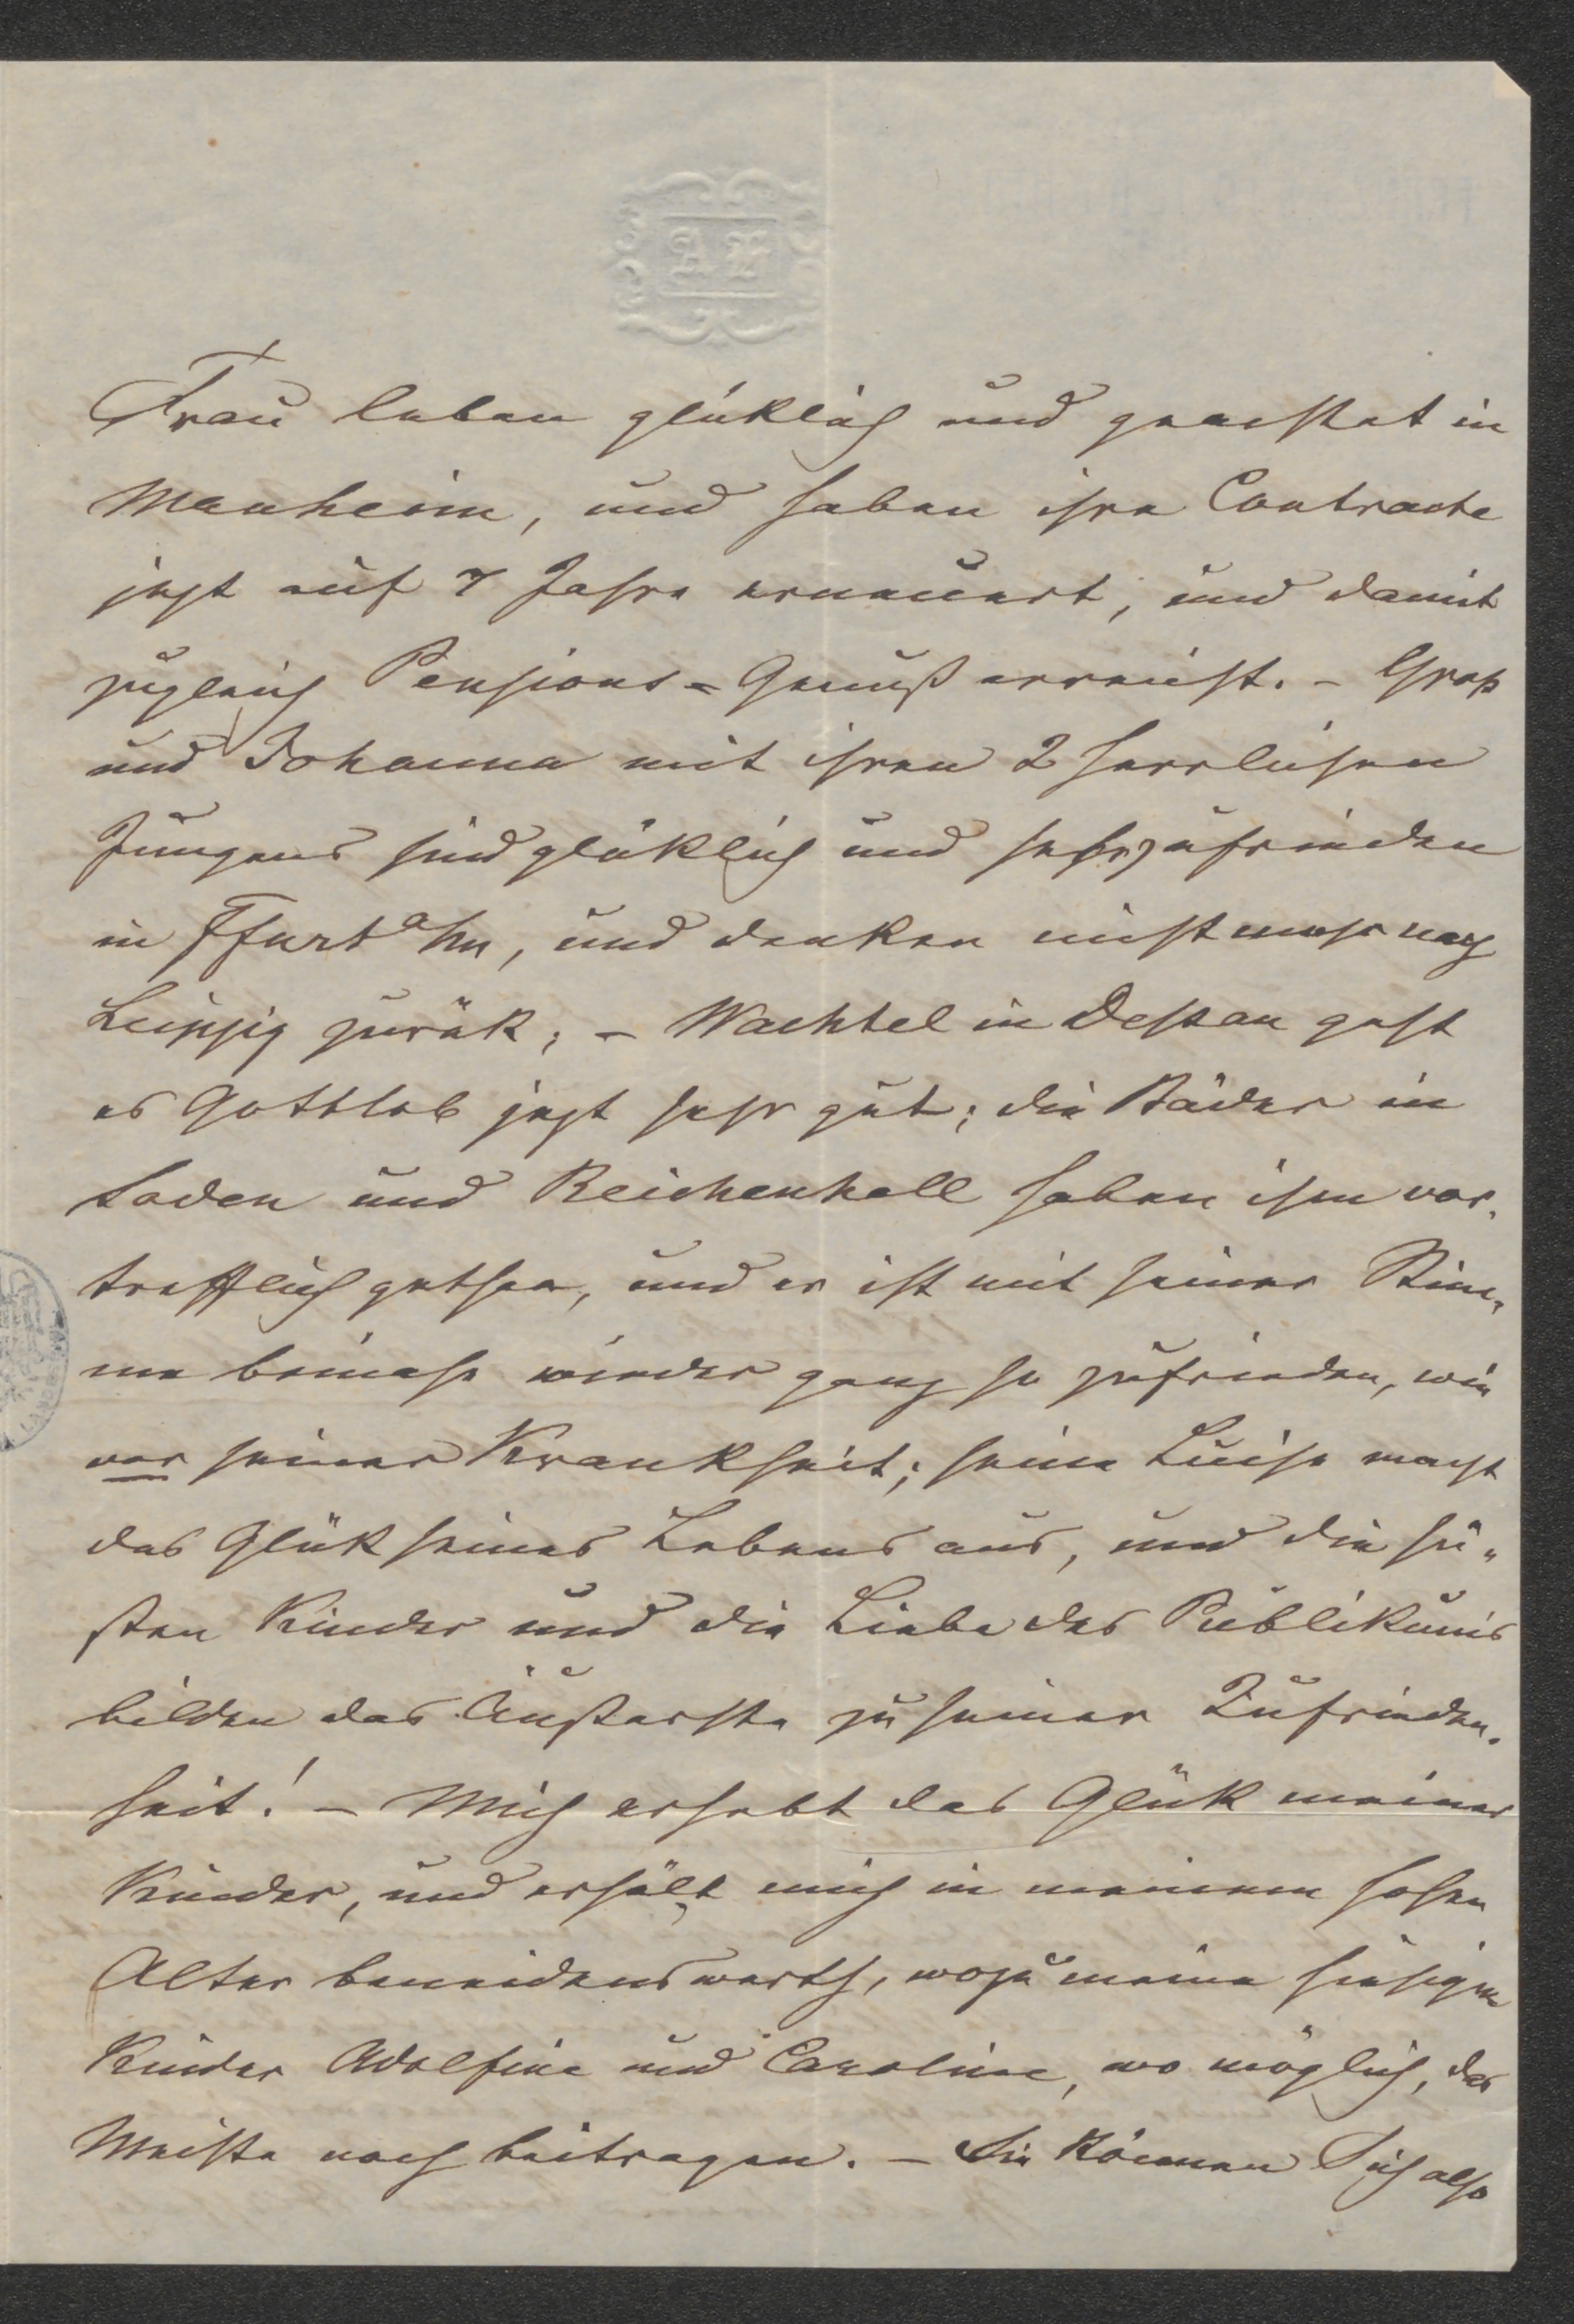 Frau leben glüklich und geachtet in
Manheim, und haben ihre Contracte
jezt auf 7 Jahre erneuert, und damit
zugleich Pensions=Genuß erreicht. – Groß
und Johanna mit ihren 2 herrlichen
Jungens sind glüklich und sehr zufrieden
in Ffurt a/m, und denken nicht mehr nach
Leipzig zurük; – Wachtel in Dessau geht
es Gottlob jezt sehr gut; die Bäder in
Soden und Reichenhall haben ihm vor-
trefflich gethan, und er ist mit seiner Stim-
me beinahe wieder ganz so zufrieden, wie
vor seiner Krankheit; seine Luise macht
das Glük seines Lebens aus, und die sü-
ßen Kinder und die Liebe des Publikums
bilden das Äußerste zu seiner Zufrieden-
heit! – Mich erhebt das Glük meiner
Kinder, und erhält mich in meinem hohen
Alter beneidenswerth, wozu meine hiesigen
Kinder Adolfine und Caroline, wo möglich, das
Meiste noch beitragen. – Sie können Sich also